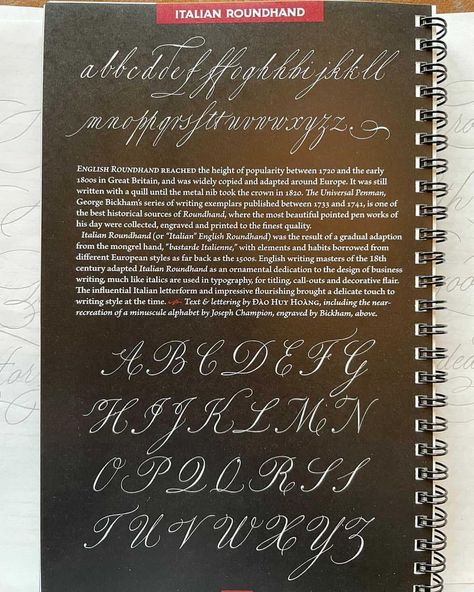 ITALIAN ROUNDHAND
abbcddefffoghhhijkkll
mnoppqrsfttuvwxyzz.
ENGLISH ROUNDHAND REACHED the height of popularity between 1720 and the early
1800s in Great Britain, and was widely copied and adapted around Europe. It was still
written with a quill until the metal nib took the crown in 1820. The Universal Penman,
George Bickham's series of writing exemplars published between 1733 and 1741, is one of
the best historical sources of Roundhand, where the most beautiful pointed pen works of
his day were collected, engraved and printed to the finest quality.
Italian Roundhand (or "Italian" English Roundhand) was the result of a gradual adaption
from the mongrel hand, "bastarde Italienne," with elements and habits borrowed from
different European styles as far back as the 1500s. English writing masters of the 18th
century adapted Italian Roundhand as an ornamental dedication to the design of business
writing, much like italics are used in typography, for titling, call-outs and decorative flair.
The influential Italian letterform and impressive flourishing brought a delicate touch to
writing style at the time. Text & lettering by ĐÀO HUY HOÀNG, including the near-
recreation of a minuscule alphabet by Joseph Champion, engraved by Bickham, above.
A B C D E F G
H I J K L M N
O P Q Q R S S
T U V W X Y Z